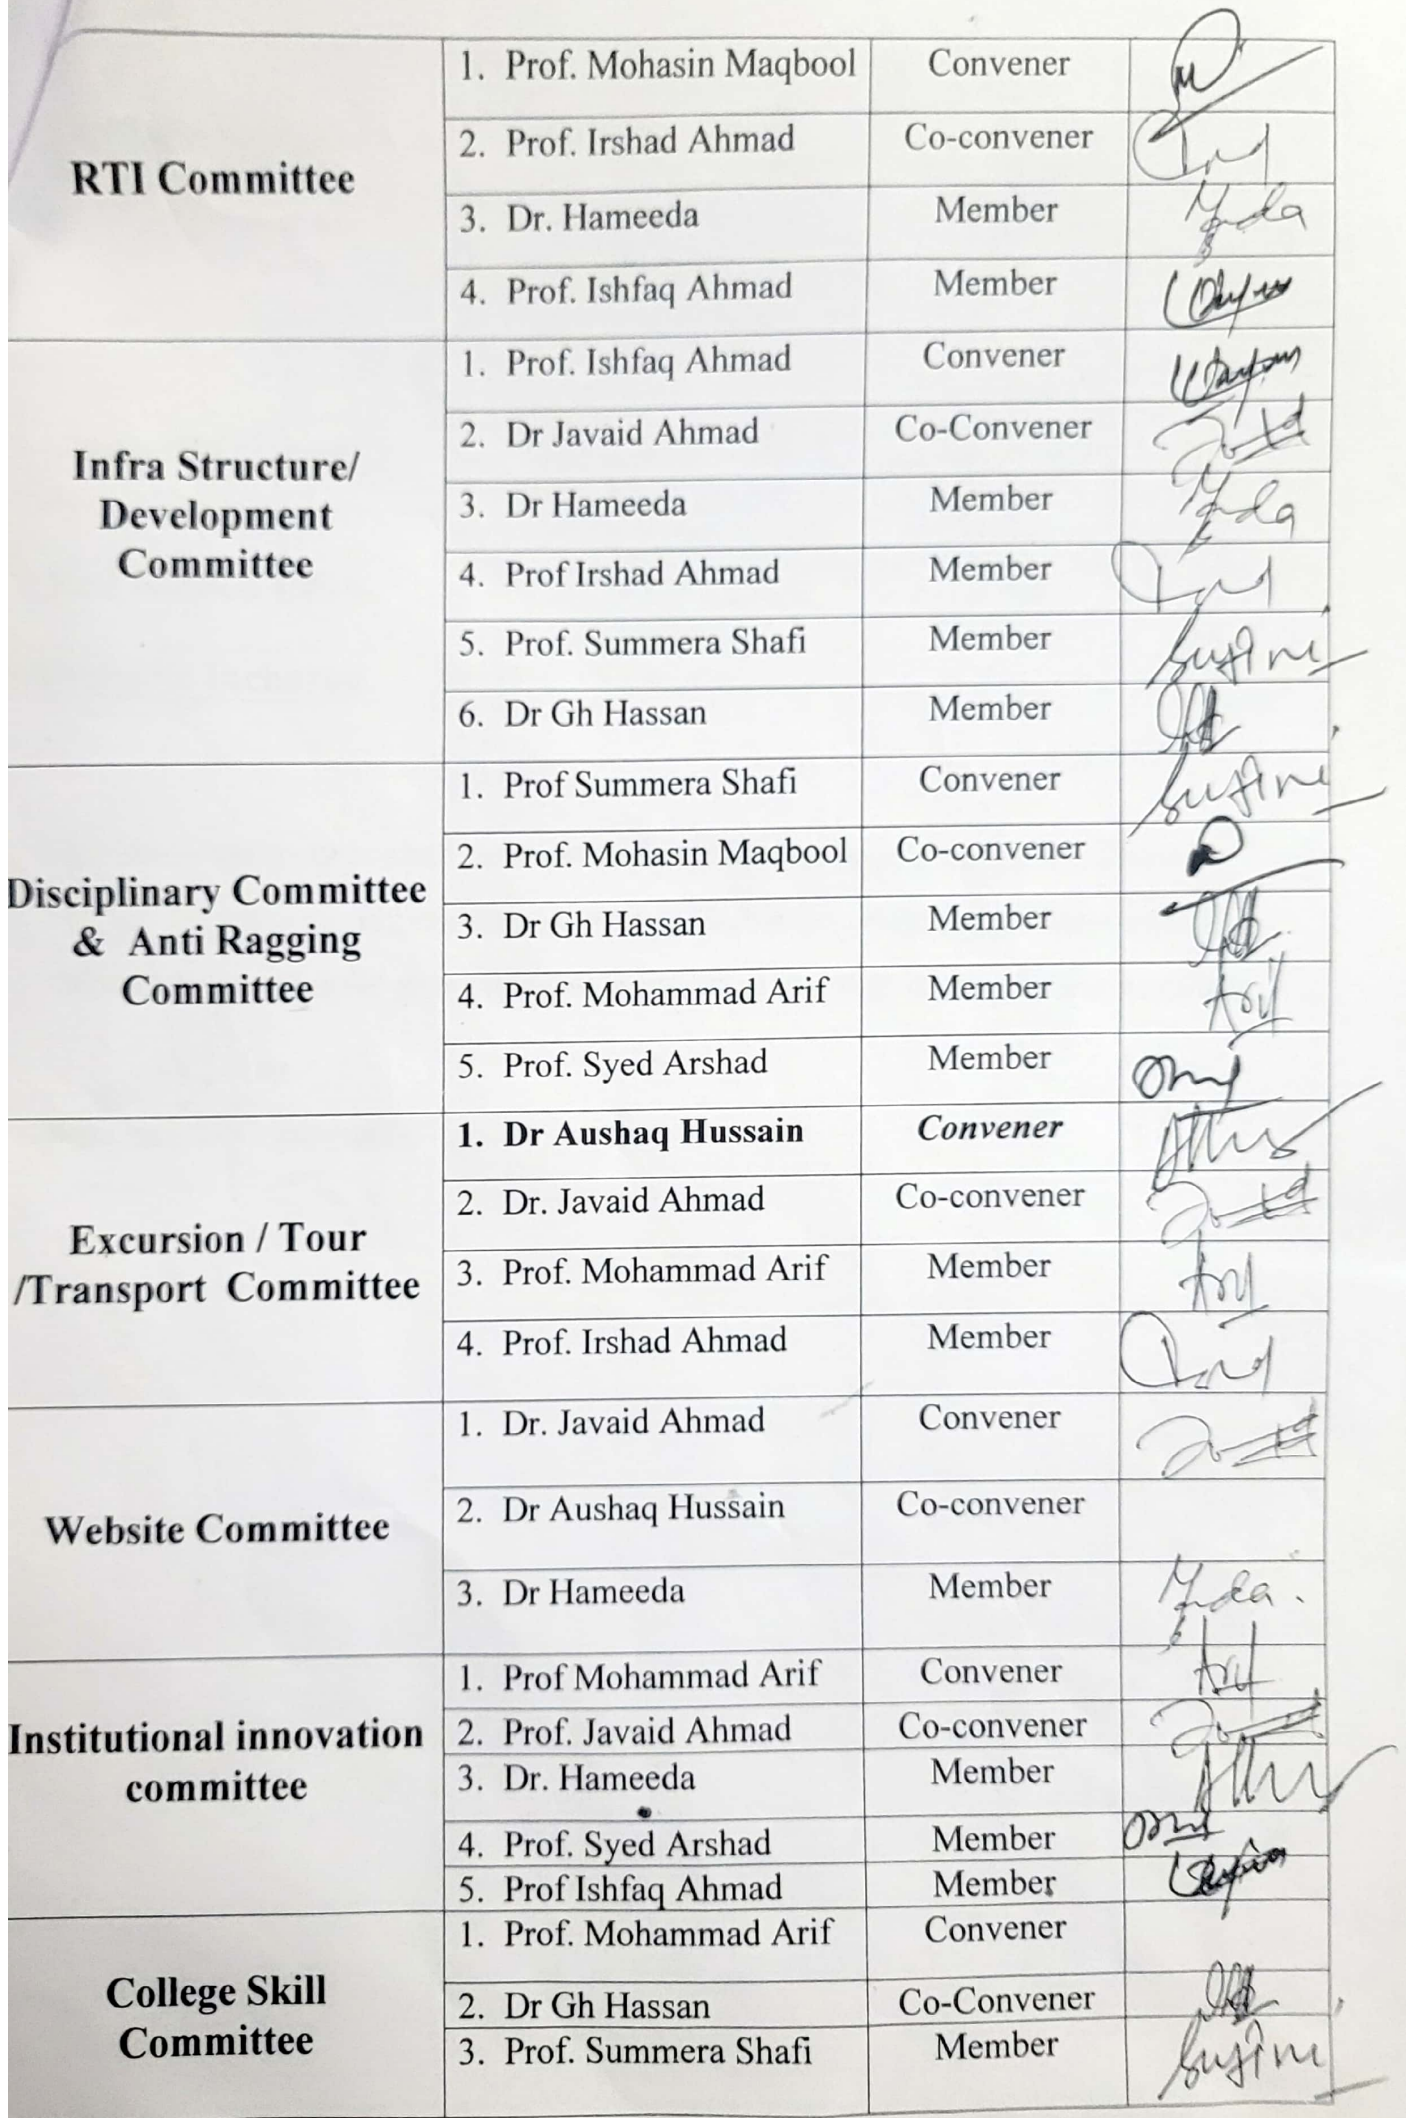 RTI Committee
1. Prof. Mohasin Maqbool Convener
2. Prof. Irshad Ahmad Co-convener
3. Dr. Hameeda Member
4. Prof. Ishfaq Ahmad Member
Infra Structure/
Development
Committee
1. Prof. Ishfaq Ahmad Convener
2. Dr Javaid Ahmad Co-Convener
3. Dr Hameeda Member
4. Prof Irshad Ahmad Member
5. Prof. Summera Shafi Member
6. Dr Gh Hassan Member
Disciplinary Committee
& Anti Ragging
Committee
1. Prof Summera Shafi Convener
2. Prof. Mohasin Maqbool Co-convener
3. Dr Gh Hassan Member
4. Prof. Mohammad Arif Member
5. Prof. Syed Arshad Member
Excursion / Tour
/Transport Committee
1. Dr Aushaq Hussain Convener
2. Dr. Javaid Ahmad Co-convener
3. Prof. Mohammad Arif Member
4. Prof. Irshad Ahmad Member
Website Committee
1. Dr. Javaid Ahmad Convener
2. Dr Aushaq Hussain Co-convener
3. Dr Hameeda Member
Institutional innovation
committee
1. Prof Mohammad Arif Convener
2. Prof. Javaid Ahmad Co-convener
3. Dr. Hameeda Member
4. Prof. Syed Arshad Member
5. Prof Ishfaq Ahmad Member
College Skill
Committee
1. Prof. Mohammad Arif Convener
2. Dr Gh Hassan Co-Convener
3. Prof. Summera Shafi Member